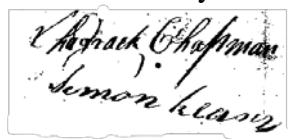 Shadrack Chapman
Simon Keans